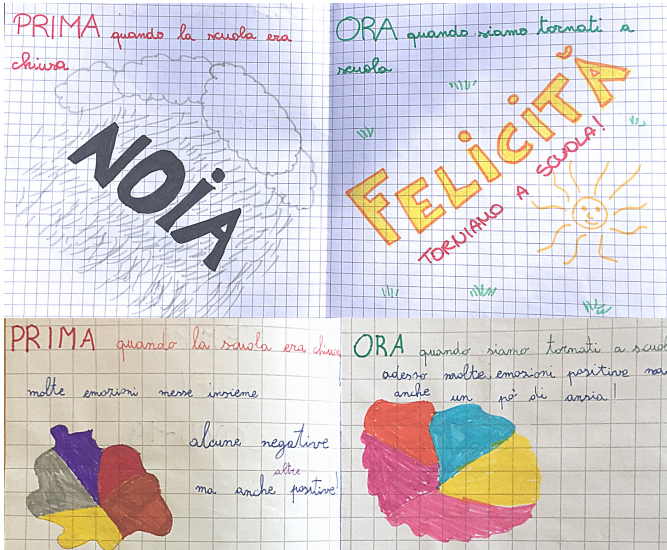 PRIMA quando la scuola era
chiusa
NOIA
ORA quando siamo tornati a
scuola
FELICITÀ
TORNIAMO A SCUOLA!
PRIMA quando la scuola era chiusa
molte emozioni messe insieme
alcune negative
altre
ma anche positive!
ORA quando siamo tornati a scuol
adesso molte emozioni positive ma
anche un pò di ansia!